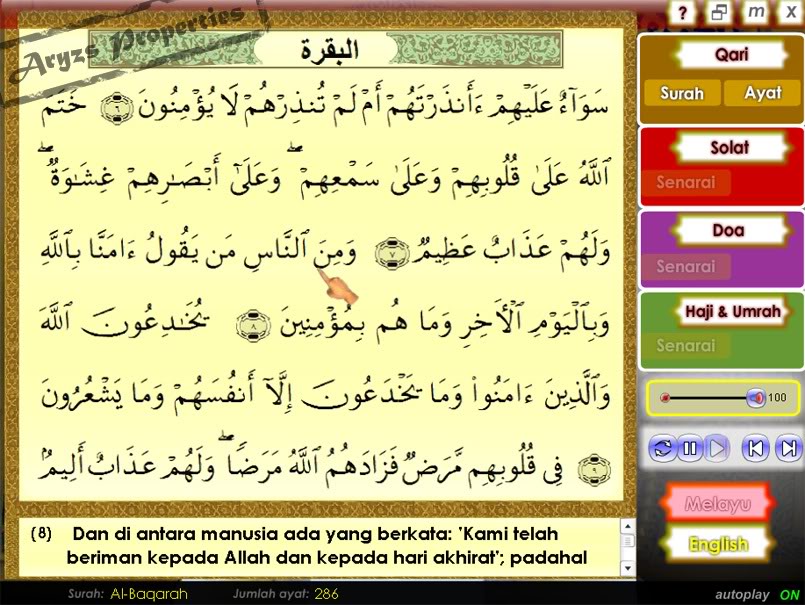 Aryzs Properties
? m X
البقرة
سَوَآءٌ عَلَيْهِمْ ءَأَنذَرْتَهُمْ أَمْ لَمْ تُنذِرْهُمْ لَا يُؤْمِنُونَ ٦ خَتَمَ
ٱللَّهُ عَلَىٰ قُلُوبِهِمْ وَعَلَىٰ سَمْعِهِمْ ۖ وَعَلَىٰٓ أَبْصَـٰرِهِمْ غِشَـٰوَةٌ ۖ
وَلَهُمْ عَذَابٌ عَظِيمٌ ٧ وَمِنَ ٱلنَّاسِ مَن يَقُولُ ءَامَنَّا بِٱللَّهِ
وَبِٱلْيَوْمِ ٱلْأَخِرِ وَمَا هُم بِمُؤْمِنِينَ ٨ يُخَـٰدِعُونَ ٱللَّهَ
وَٱلَّذِينَ ءَامَنُوا۟ وَمَا يَخْدَعُونَ إِلَّآ أَنفُسَهُمْ وَمَا يَشْعُرُونَ
٩ فِى قُلُوبِهِم مَّرَضٌ فَزَادَهُمُ ٱللَّهُ مَرَضًا ۖ وَلَهُمْ عَذَابٌ أَلِيمٌۢ
(8) Dan di antara manusia ada yang berkata: 'Kami telah
beriman kepada Allah dan kepada hari akhirat'; padahal
Qari
Surah Ayat
Solat
Senarai
Doa
Senarai
Haji & Umrah
Senarai
100
Melayu
English
Surah: Al-Baqarah Jumlah ayat: 286 autoplay ON